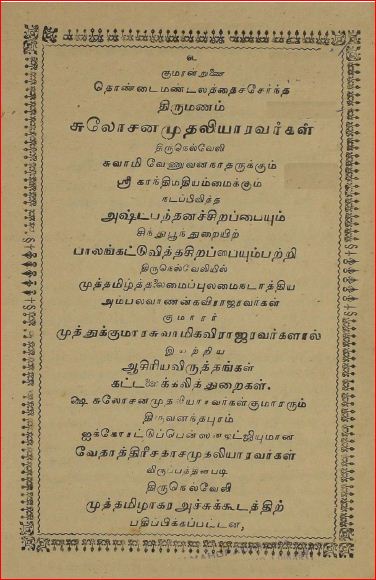 உ
குமரன்றுணை
தொண்டைமண்டலத்தைச்சேர்ந்த
திருமணம்
சுலோசனமுதலியாரவர்கள்
திருநெல்வேலி
சுவாமி வேணுவனநாதருக்கும்
ஸ்ரீ காந்திமதியம்மைக்கும்
நடப்பிவித்த
அஷ்டபந்தனச்சிறப்பையும்
சிந்துபூந்துறையிற்
பாலங்கட்டுவித்தசிறப்பையும்பற்றி
திருநெல்வேலியில்
முத்தமிழ்த்தலைமைப்புலமைநடாத்திய
அம்பலவாணன்கவிராஜரவர்கள்
குமாரர்
முத்துக்குமாரசுவாமிகவிராஜரவர்களால்
இயற்றிய
ஆசிரியவிருத்தங்கள்
கட்டளைக்கலித்துறைகள்.
ஷை சுலோசனமுதலியாரவர்கள்குமாரரும்
திருவனந்தபுரம்
ஐக்கோர்ட்டுப்பென்ஸன்
வேதாத்திரீசதாசமுதலியாரவர்கள்
விருப்பத்தின்படி
திருநெல்வேலி
முத்தமிழாகரஅச்சுக்கூடத்திற்
பதிப்பிக்கப்பட்டன,